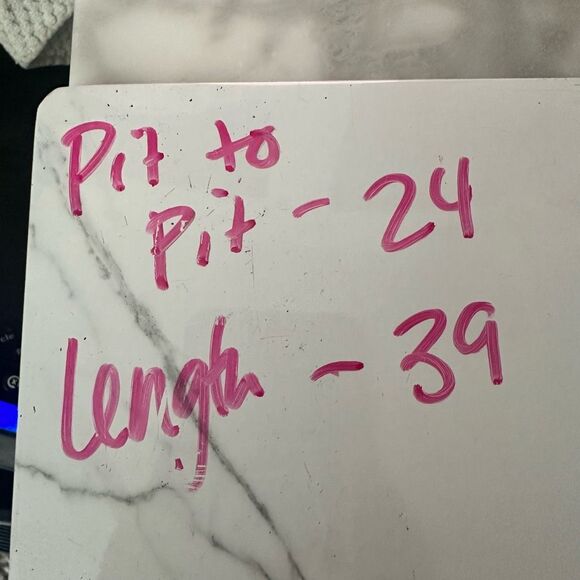 Pit to
Pit - 24
Length - 39